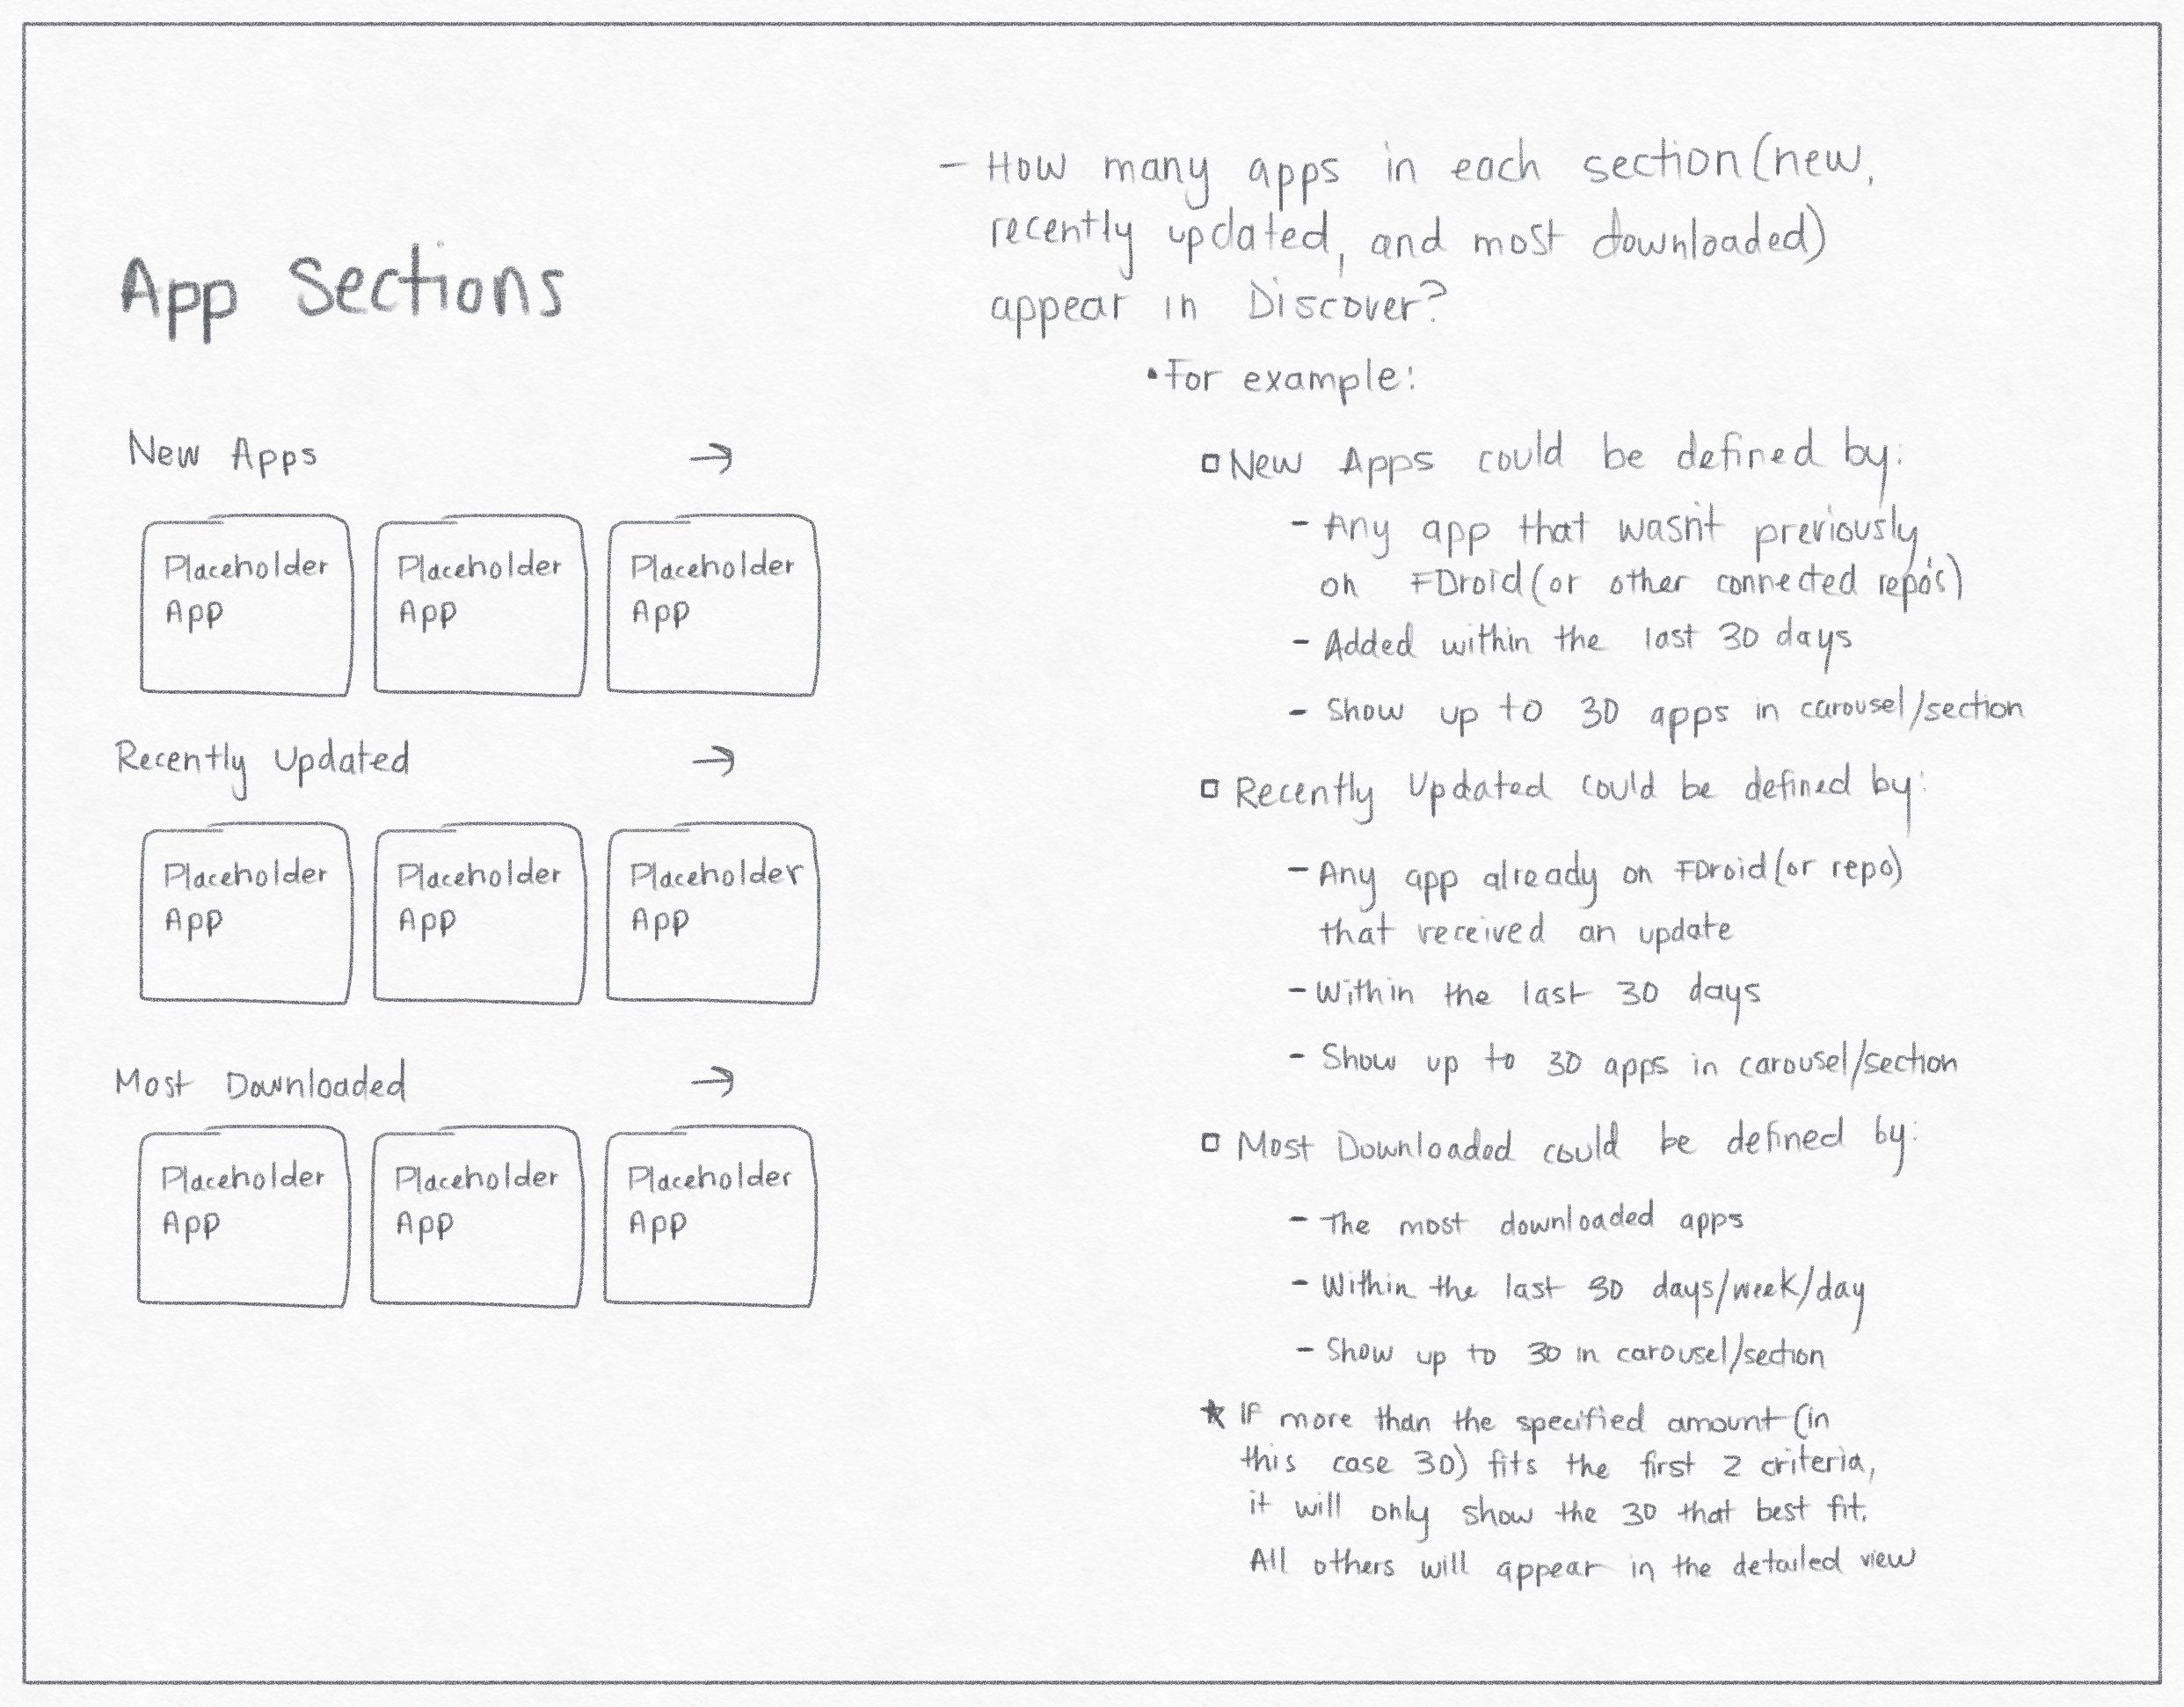 App Sections
New Apps →
Placeholder Placeholder Placeholder
App App App
Recently Updated →
Placeholder Placeholder Placeholder
App App App
Most Downloaded →
Placeholder Placeholder Placeholder
App App App
- How many apps in each section (new,
recently updated, and most downloaded)
appear in Discover?
• For example:
▫ New Apps could be defined by:
- Any app that wasn't previously
on FDroid (or other connected repo's)
- Added within the last 30 days
- Show up to 30 apps in carousel/section
▫ Recently Updated could be defined by:
- Any app already on FDroid (or repo)
that received an update
- Within the last 30 days
- Show up to 30 apps in carousel/section
▫ Most Downloaded could be defined by:
- The most downloaded apps
- Within the last 30 days/week/day
- Show up to 30 in carousel/section
★ If more than the specified amount (in
this case 30) fits the first 2 criteria,
it will only show the 30 that best fit.
All others will appear in the detailed view